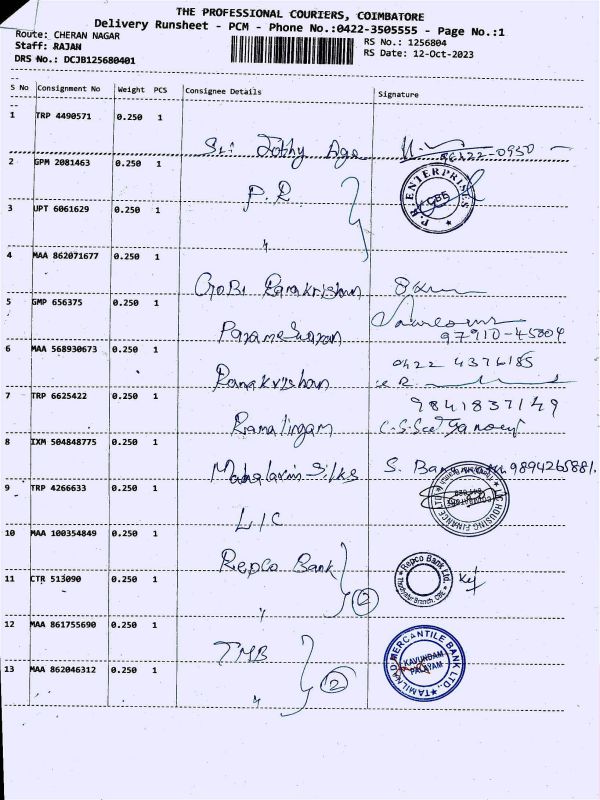 THE PROFESSIONAL COURIERS, COIMBATORE
Delivery Runsheet - PCM - Phone No.:0422-3505555 - Page No.:1
Route: CHERAN NAGAR RS No.: 1256804
Staff: RAJAN RS Date: 12-Oct-2023
DRS No.: DCJB125680401
S No Consignment No Weight PCS Consignee Details Signature
1 TRP 4490571 0.250 1
98422-0950
2 GPM 2081463 0.250 1 P.R. P.R. ENTERPRISES CBE
3 UPT 6061629 0.250 1 "
4 MAA 862071677 0.250 1
Gobi Ramakrishnan
5 GMP 656375 0.250 1
Parameswaran 97910-45804
6 MAA 568930673 0.250 1 0422 4376185
Ramakrishnan
7 TRP 6625422 0.250 1 9841837149
Ramalingam
8 IXM 504848775 0.250 1
Mahalaxmi Silks S. 9894265881.
9 TRP 4266633 0.250 1 LIC HOUSING FINANCE LTD
LIC
10 MAA 100354849 0.250 1
Repco Bank Repco Bank Ltd.
11 CTR 513090 0.250 1 Thudiyalur Branch, CBE
" 2
12 MAA 861755690 0.250 1
TMB TAMILNAD MERCANTILE BANK LTD.
KAVUNDAM PALAYAM
13 MAA 862046312 0.250 1 " 2